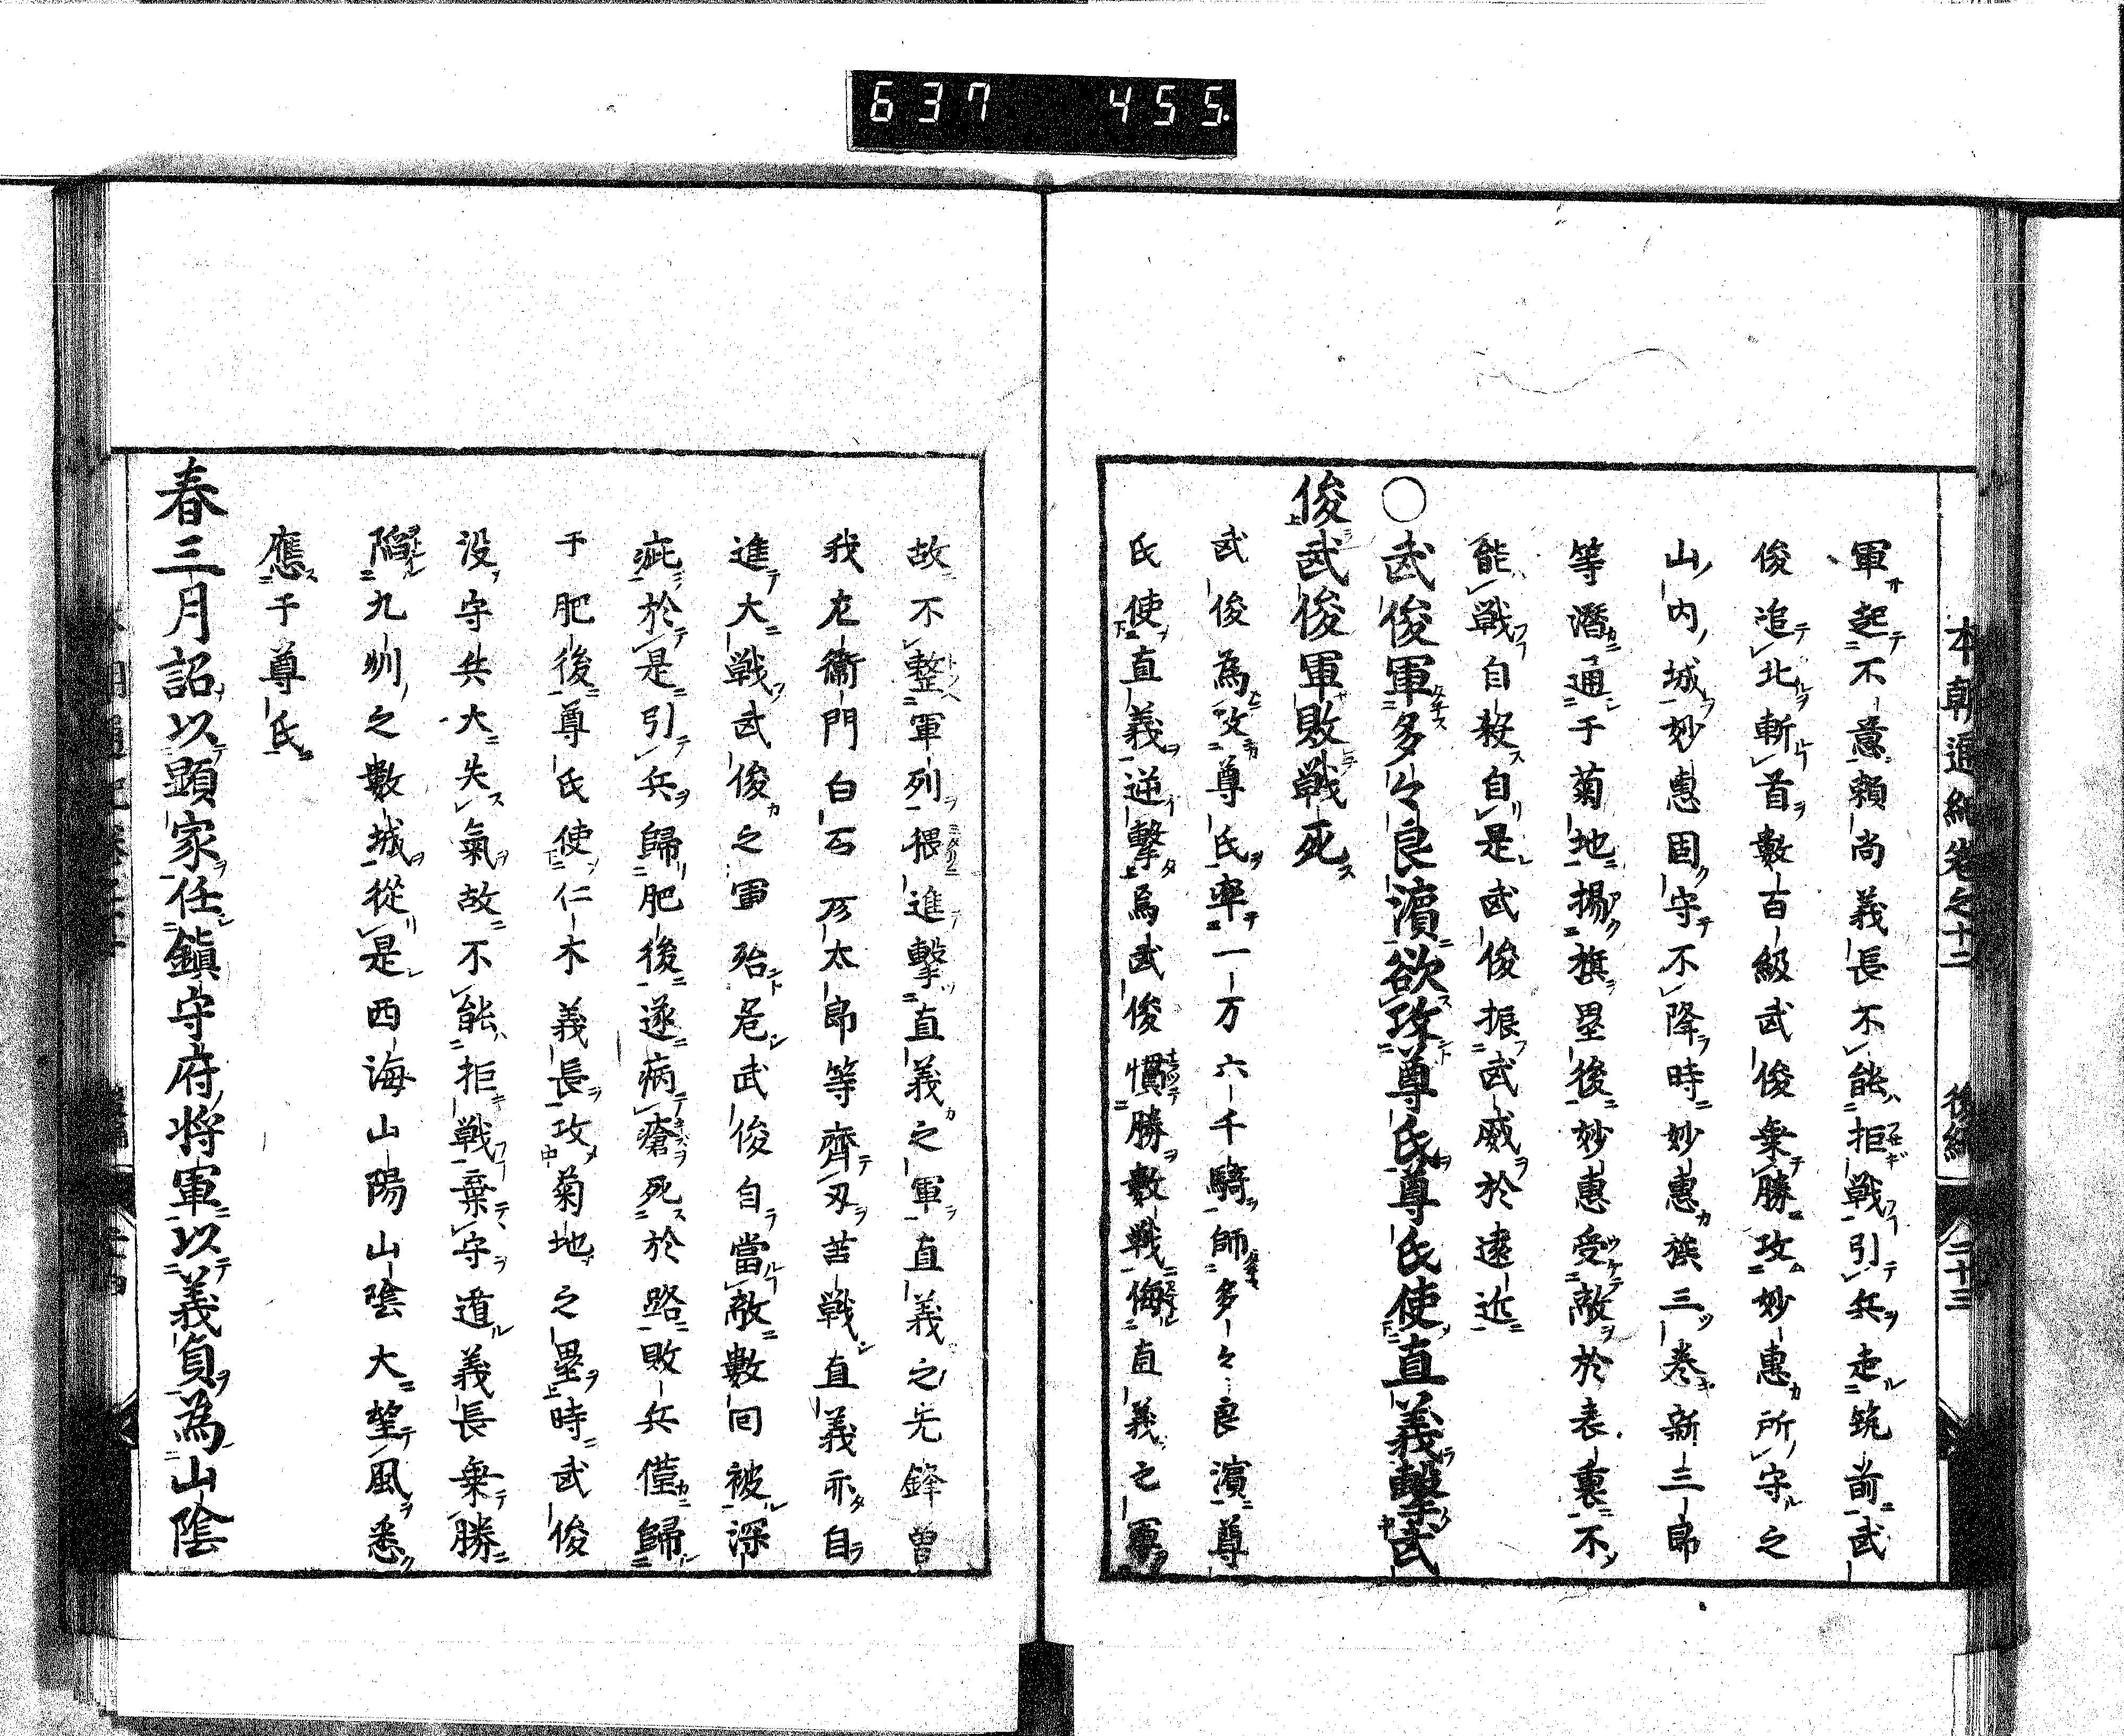 637 455.
本朝通紀卷之十二 後編 二十三
軍起不意頼尚義長不能拒戰引兵走筑前武
俊追北斬首數百級武俊乗勝攻妙惠所守之
山内城妙惠固守不降時妙惠族三巻新三郎
等潛通于菊地揚旗塁後妙惠受敵於表裏不
能戰自殺自是武俊振武威於遠近
○武俊軍多々良濱欲攻尊氏尊氏使直義擊武
俊武俊軍敗戰死
武俊為攻尊氏率一万六千騎師多々良濱尊
氏使直義逆擊焉武俊慣勝數戰侮直義之軍
故不整軍列猥進擊直義之軍直義之先鋒曽
我左衞門白石彦太郎等齊刄苦戰直義亦自
進大戰武俊之軍殆危武俊自當敵數回被深
疵於是引兵歸肥後遂病瘡死於路敗兵僅歸
于肥後尊氏使仁木義長攻菊地之塁時武俊
没守兵大失氣故不能拒戰棄守道義長乗勝
陷九州之數城從是西海山陽山陰大望風悉
應于尊氏
春三月詔以顕家任鎭守府将軍以義貞為山陰